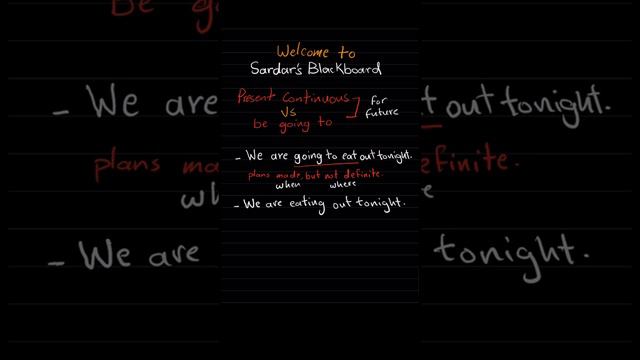 Welcome to
Sardar's Blackboard
Present Continuous
vs
be going to
for
future
- We are going to eat out tonight.
plans made, but not definite.
when where
- We are eating out tonight.